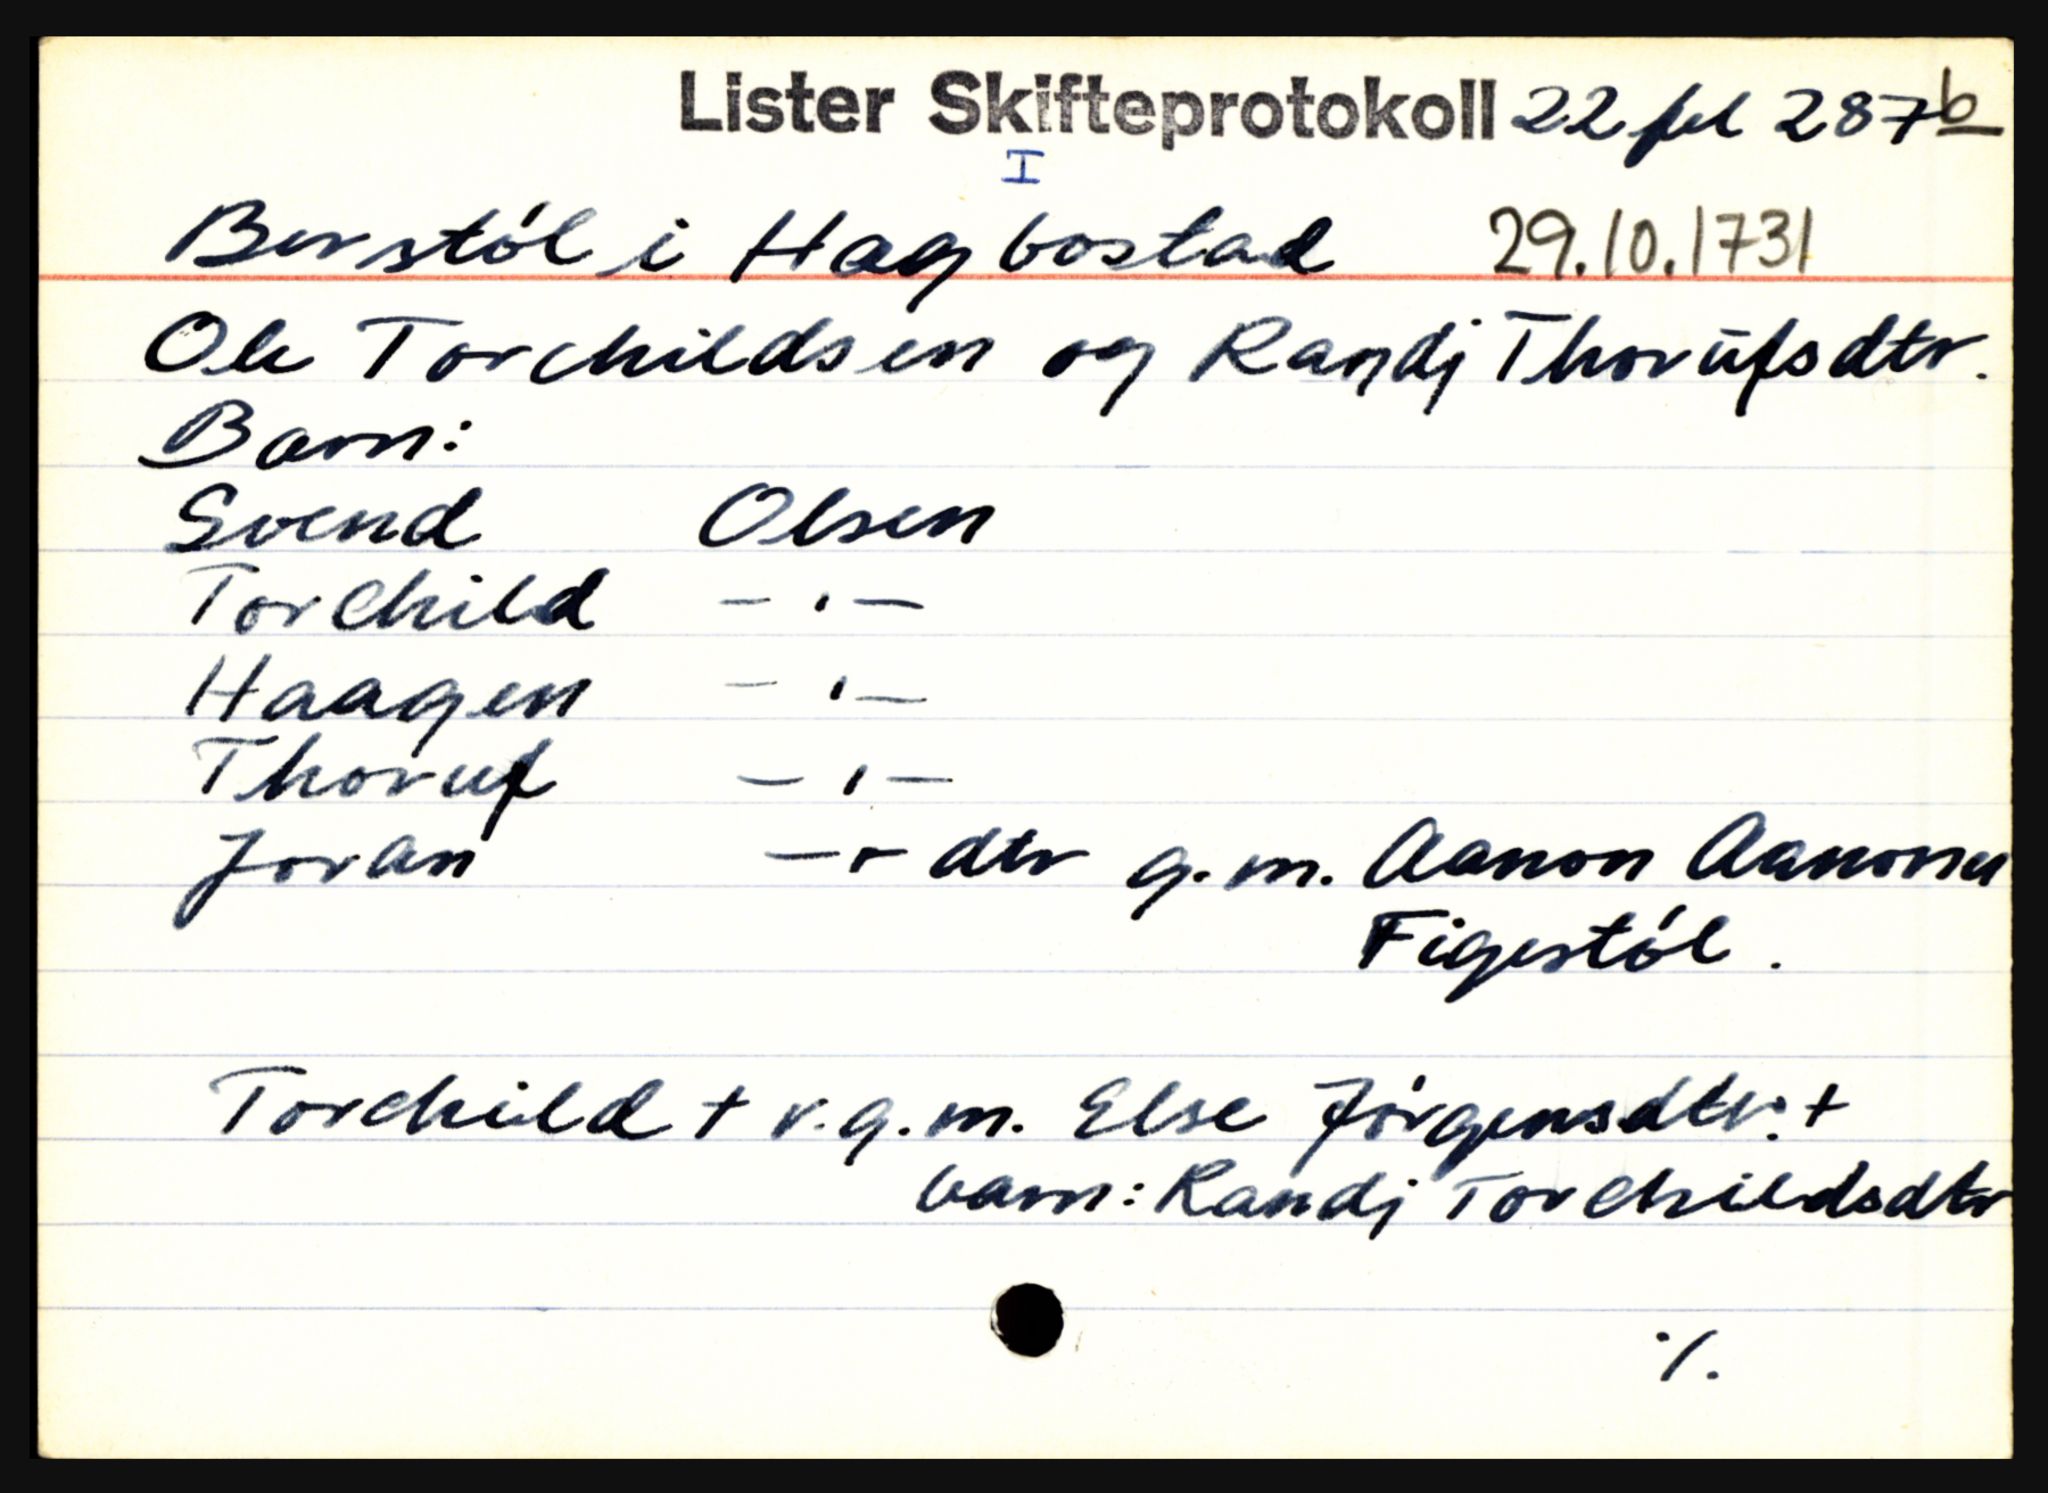 Lister Skifteprotokoll 22 fol 287b
I
Berstól i Hagbostad 29.10.1731
Ole Torchildsen og Randj Thorufsdtr.
Barn:
Svend Olsen
Torchild - ' -
Haagen - ' -
Thoruf - ' -
Joran - " - dtr g.m. Aanon Aanonsen
Figestól.
Torchild + v.g.m. Else Jórgensdtr. +
barn: Randj Torchildsdtr
./.